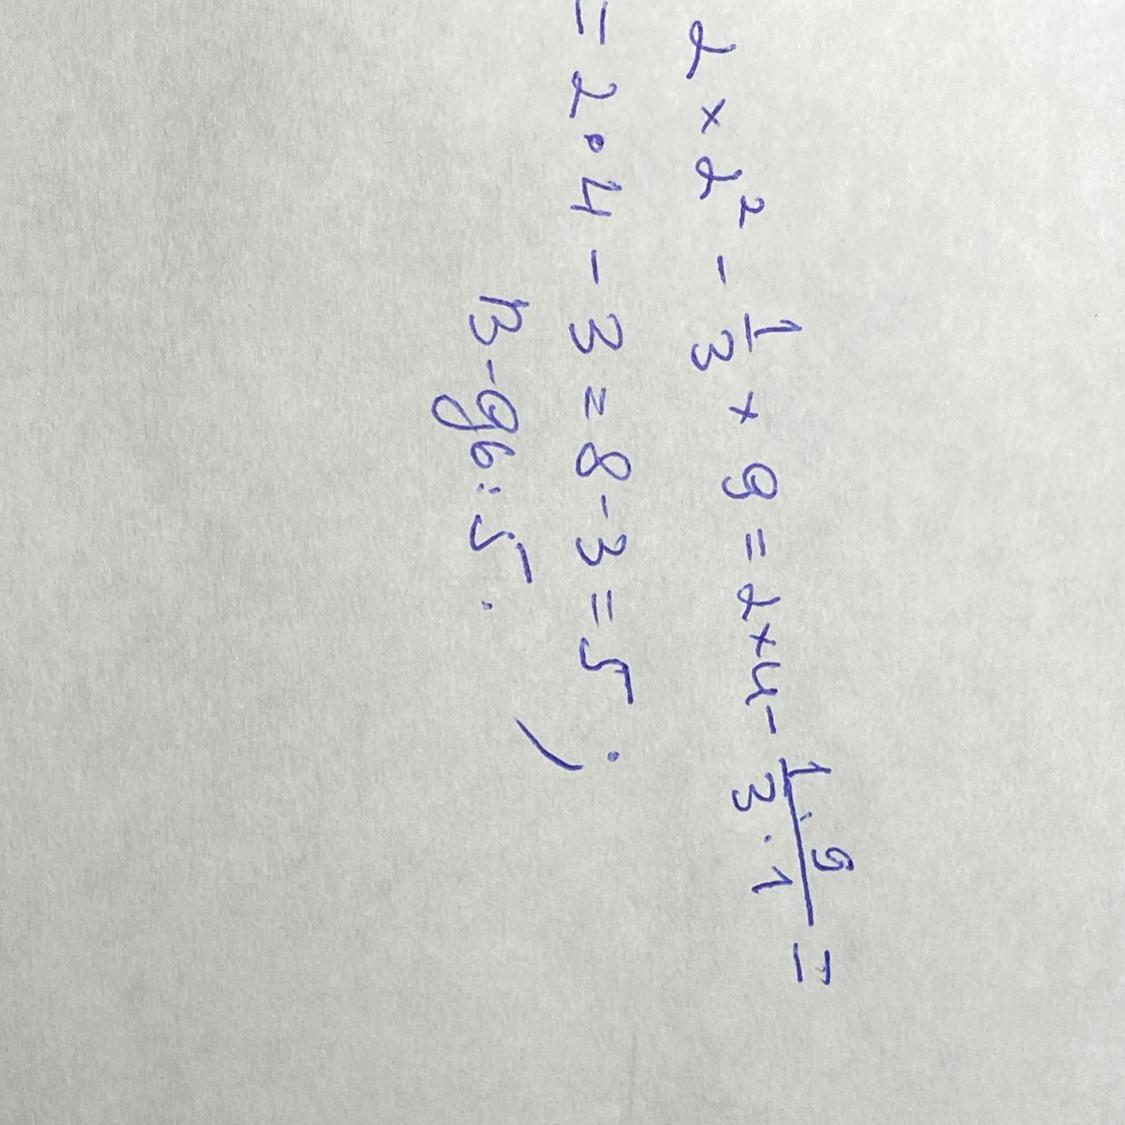 2 × 2² - 1/3 × 9 = 2×4 - 1·9/3·1 =
= 2·4 - 3 = 8 - 3 = 5 ;
В-дь: 5.